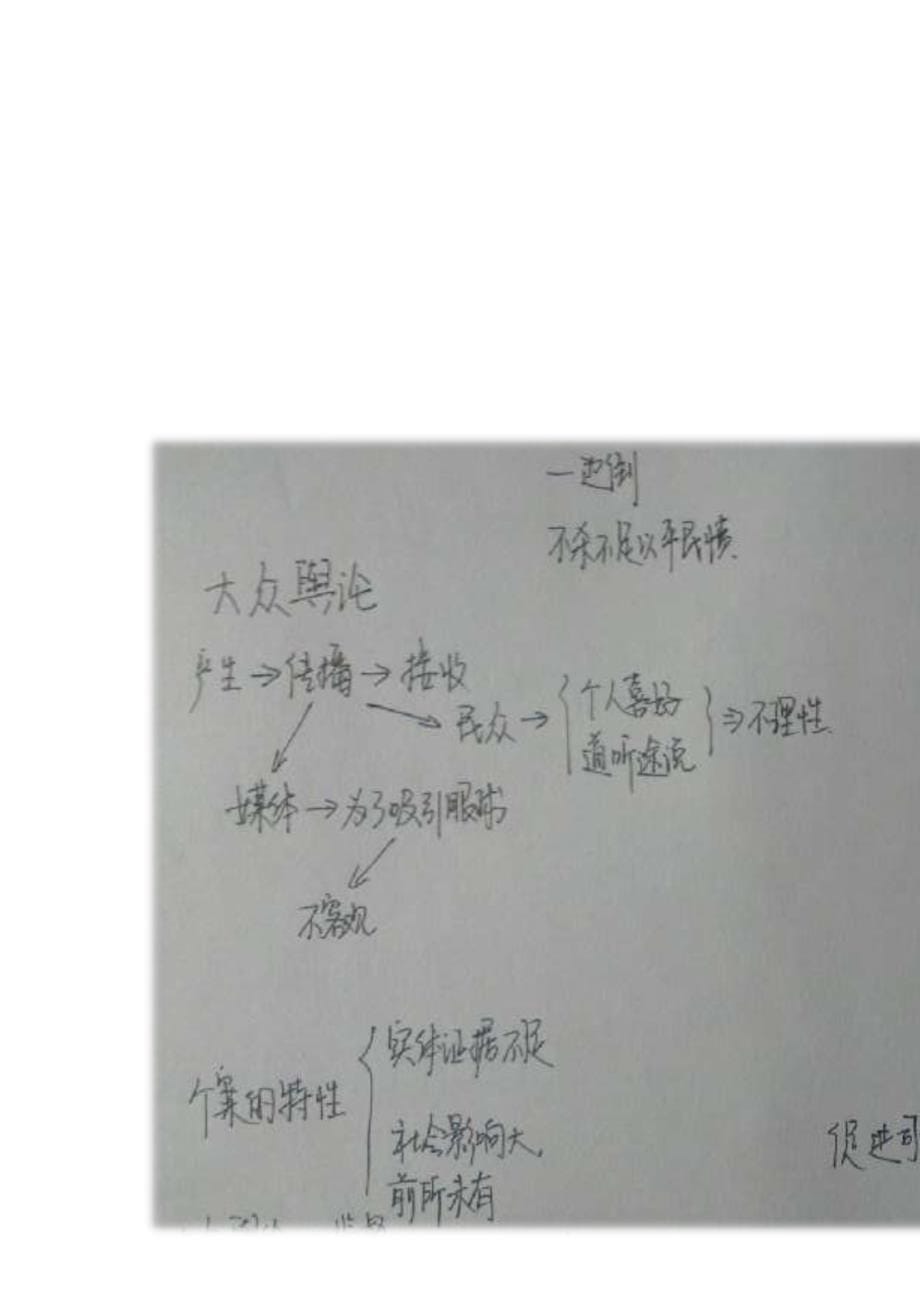 一边倒
不杀不足以平民愤.
大众舆论
产生→传播→接收
民众→{个人喜好 道听途说}⇒不理性.
媒体→为了吸引眼球
不客观
个案的特性
实体证据不足
社会影响大,
前所未有
促进司